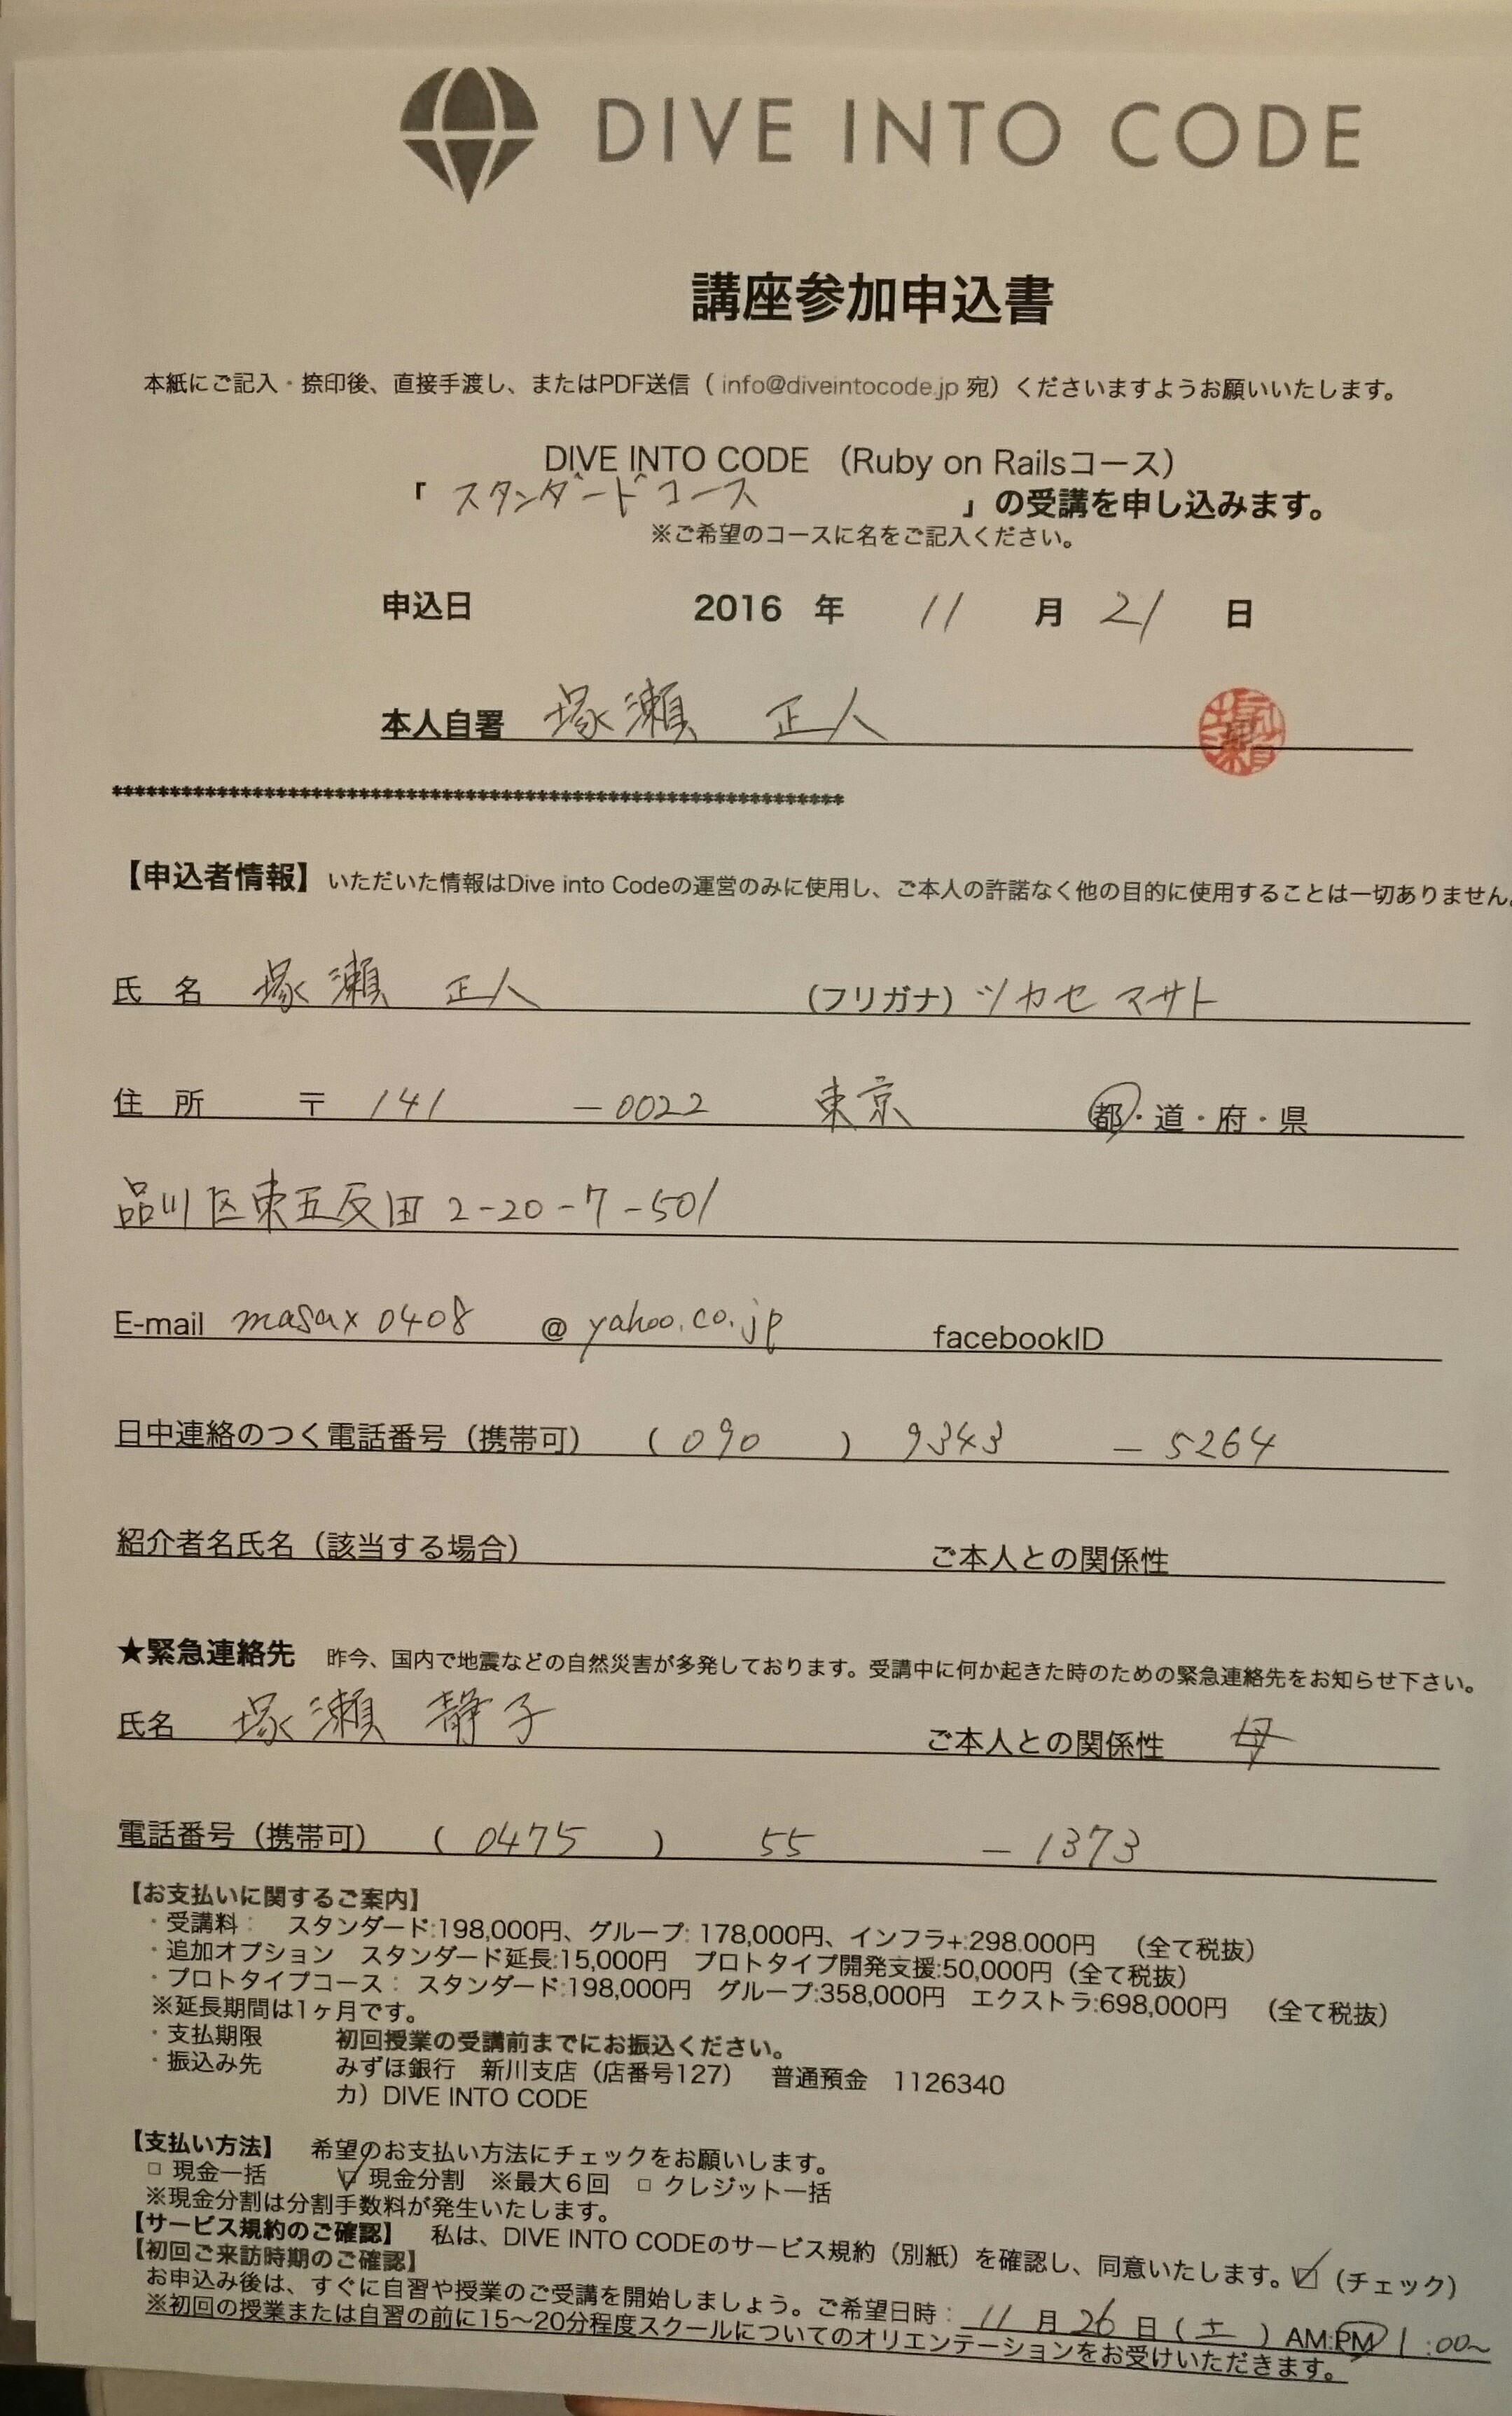 DIVE INTO CODE
講座参加申込書
本紙にご記入・捺印後、直接手渡し、またはPDF送信（ info@diveintocode.jp 宛）くださいますようお願いいたします。
DIVE INTO CODE （Ruby on Railsコース）
「 スタンダードコース 」の受講を申し込みます。
※ご希望のコースに名をご記入ください。
申込日 2016 年 11 月 21 日
本人自署 塚瀬 正人
***************************************************************
【申込者情報】いただいた情報はDive into Codeの運営のみに使用し、ご本人の許諾なく他の目的に使用することは一切ありません。
氏 名 塚瀬 正人 （フリガナ）ツカセ マサト
住 所 〒 141 －0022 東京 都・道・府・県
品川区東五反田 2-20-7-501
E-mail masax0408 @ yahoo.co.jp facebookID
日中連絡のつく電話番号（携帯可） （ 090 ） 9343 － 5264
紹介者名氏名（該当する場合） ご本人との関係性
★緊急連絡先 昨今、国内で地震などの自然災害が多発しております。受講中に何か起きた時のための緊急連絡先をお知らせ下さい。
氏名 塚瀬 静子 ご本人との関係性 母
電話番号（携帯可） （ 0475 ） 55 － 1373
【お支払いに関するご案内】
・受講料： スタンダード:198,000円、グループ: 178,000円、インフラ+:298.000円 （全て税抜）
・追加オプション スタンダード延長:15,000円 プロトタイプ開発支援:50,000円（全て税抜）
・プロトタイプコース： スタンダード:198,000円 グループ:358,000円 エクストラ:698,000円 （全て税抜）
※延長期間は1ヶ月です。
・支払期限 初回授業の受講前までにお振込ください。
・振込み先 みずほ銀行 新川支店（店番号127） 普通預金 1126340
カ）DIVE INTO CODE
【支払い方法】 希望のお支払い方法にチェックをお願いします。
□ 現金一括 ☑ 現金分割 ※最大６回 □ クレジット一括
※現金分割は分割手数料が発生いたします。
【サービス規約のご確認】 私は、DIVE INTO CODEのサービス規約（別紙）を確認し、同意いたします。☑（チェック）
【初回ご来訪時期のご確認】
お申込み後は、すぐに自習や授業のご受講を開始しましょう。ご希望日時： 11 月 26 日（ 土 ） AM:PM 1 :00~
※初回の授業または自習の前に15〜20分程度スクールについてのオリエンテーションをお受けいただきます。